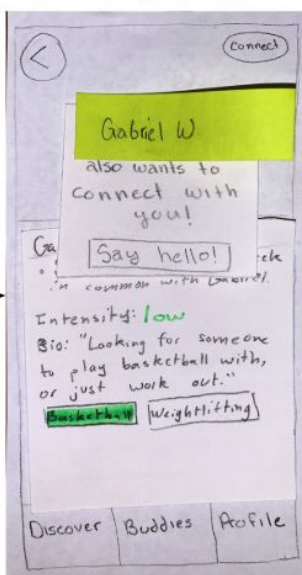 Connect
Gabriel W
also wants to
connect with
you!
Say hello!
Ga
in common with Gabriel.
Intensity: low
Bio: "Looking for someone
to play basketball with,
or just work out."
Basketball Weightlifting
Discover Buddies Profile